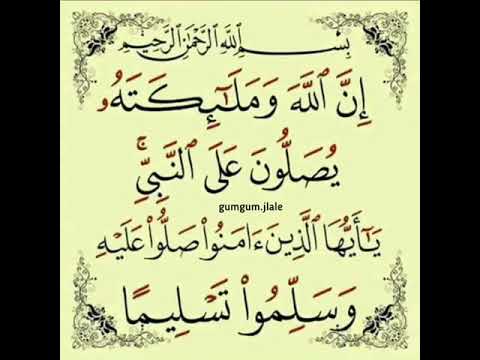 بِسْمِ اللَّهِ الرَّحْمَٰنِ الرَّحِيمِ
إِنَّ ٱللَّهَ وَمَلَـٰٓئِكَتَهُۥ
يُصَلُّونَ عَلَى ٱلنَّبِىِّ ۚ
gumgum.jlale
يَـٰٓأَيُّهَا ٱلَّذِينَ ءَامَنُوا۟ صَلُّوا۟ عَلَيْهِ
وَسَلِّمُوا۟ تَسْلِيمًا